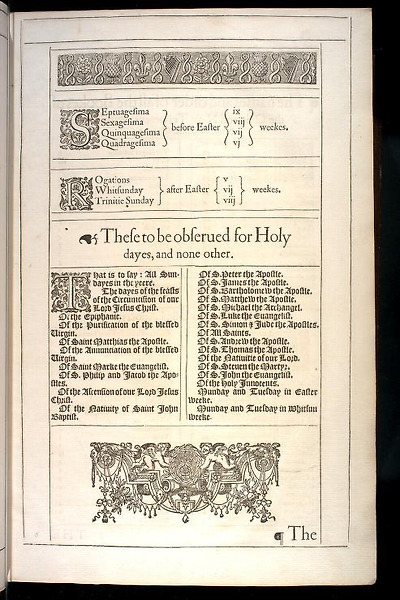 Septuagesima
Sexagesima
Quinquagesima
Quadragesima
before Easter
ix
viij
vij
vj
weekes.
Rogations
Whitsunday
Trinitie Sunday
after Easter
v
vij
viij
weekes.
These to be obserued for Holy
dayes, and none other.
That is to say: All Sun-
dayes in the yeere.
The dayes of the feasts
of the Circumcision of our
Lord Jesus Christ.
Of the Epiphanie.
Of the Purification of the blessed
Virgin.
Of Saint Matthias the Apostle.
Of the Annunciation of the blessed
Virgin.
Of Saint Marke the Euangelist.
Of S. Philip and Jacob the Apo-
stles.
Of the Ascension of our Lord Jesus
Christ.
Of the Nativity of Saint John
Baptist.
Of S. Peter the Apostle.
Of S. James the Apostle.
Of S. Bartholomew the Apostle.
Of S. Matthew the Apostle.
Of S. Michael the Archangel.
Of S. Luke the Euangelist.
Of S. Simon & Jude the Apostles.
Of All Saints.
Of S. Andrew the Apostle.
Of S. Thomas the Apostle.
Of the Natiuitie of our Lord.
Of S. Steuen the Martyr.
Of S. John the Euangelist.
Of the holy Innocents.
Munday and Tuesday in Easter
weeke.
Munday and Tuesday in Whitsun
weeke.
¶ The